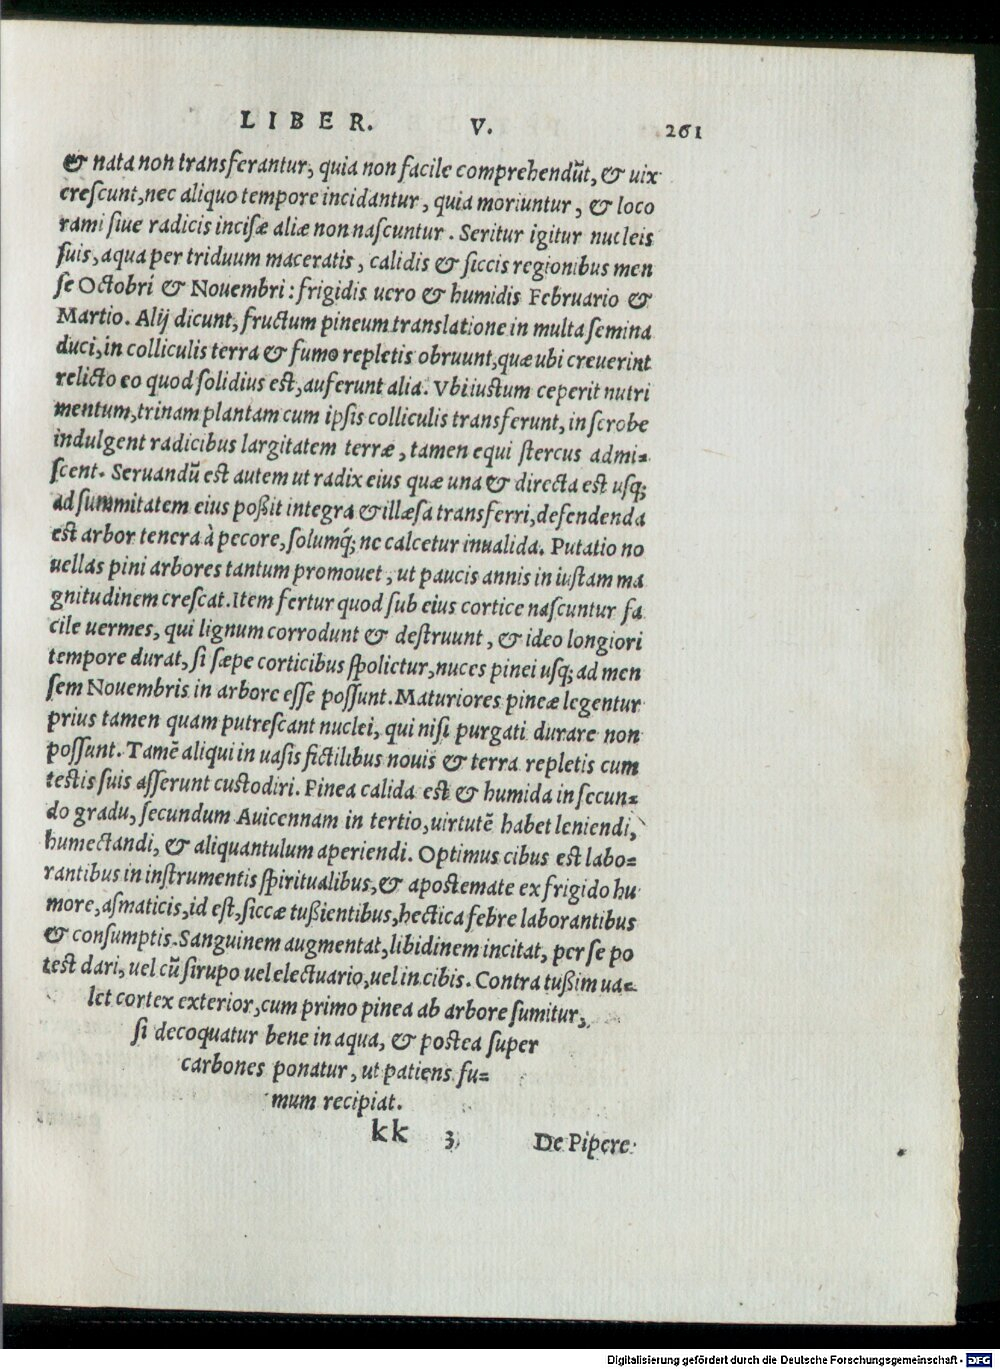 LIBER. V. 261
& nata non transferantur, quia non facile comprehendũt, & uix
crescunt, nec aliquo tempore incidantur, quia moriuntur, & loco
rami siue radicis incisæ aliæ non nascuntur. Seritur igitur nucleis
suis, aqua per triduum maceratis, calidis & siccis regionibus men
se Octobri & Nouembri: frigidis uero & humidis Februario &
Martio. Alij dicunt, fructum pineum translatione in multa semina
duci, in colliculis terra & fumo repletis obruunt, quæ ubi creuerint
relicto eo quod solidius est, auferunt alia. Vbi iustum ceperit nutri
mentum, trinam plantam cum ipsis colliculis transferunt, in scrobe
indulgent radicibus largitatem terræ, tamen equi stercus admi=
scent. Seruandũ est autem ut radix eius quæ una & directa est usq;
ad summitatem eius poßit integra & illæsa transferri, defendenda
est arbor tenera à pecore, solumq́; ne calcetur inualida. Putatio no
uellas pini arbores tantum promouet, ut paucis annis in iustam ma
gnitudinem crescat. Item fertur quod sub eius cortice nascuntur fa
cile uermes, qui lignum corrodunt & destruunt, & ideo longiori
tempore durat, si sæpe corticibus spolietur, nuces pinei usq; ad men
sem Nouembris in arbore esse possunt. Maturiores pineæ legentur
prius tamen quam putrescant nuclei, qui nisi purgati durare non
possunt. Tamẽ aliqui in uasis fictilibus nouis & terra repletis cum
testis suis asserunt custodiri. Pinea calida est & humida in secun=
do gradu, secundum Auicennam in tertio, uirtutẽ habet leniendi,
humectandi, & aliquantulum aperiendi. Optimus cibus est labo=
rantibus in instrumentis spiritualibus, & apostemate ex frigido hu
more, asmaticis, id est, siccæ tußientibus, hectica febre laborantibus
& consumptis. Sanguinem augmentat, libidinem incitat, per se po
test dari, uel cũ sirupo uel electuario, uel in cibis. Contra tußim ua=
let cortex exterior, cum primo pinea ab arbore sumitur,
si decoquatur bene in aqua, & postea super
carbones ponatur, ut patiens fu=
mum recipiat.
kk 3 De Pipere
Digitalisierung gefördert durch die Deutsche Forschungsgemeinschaft - DFG